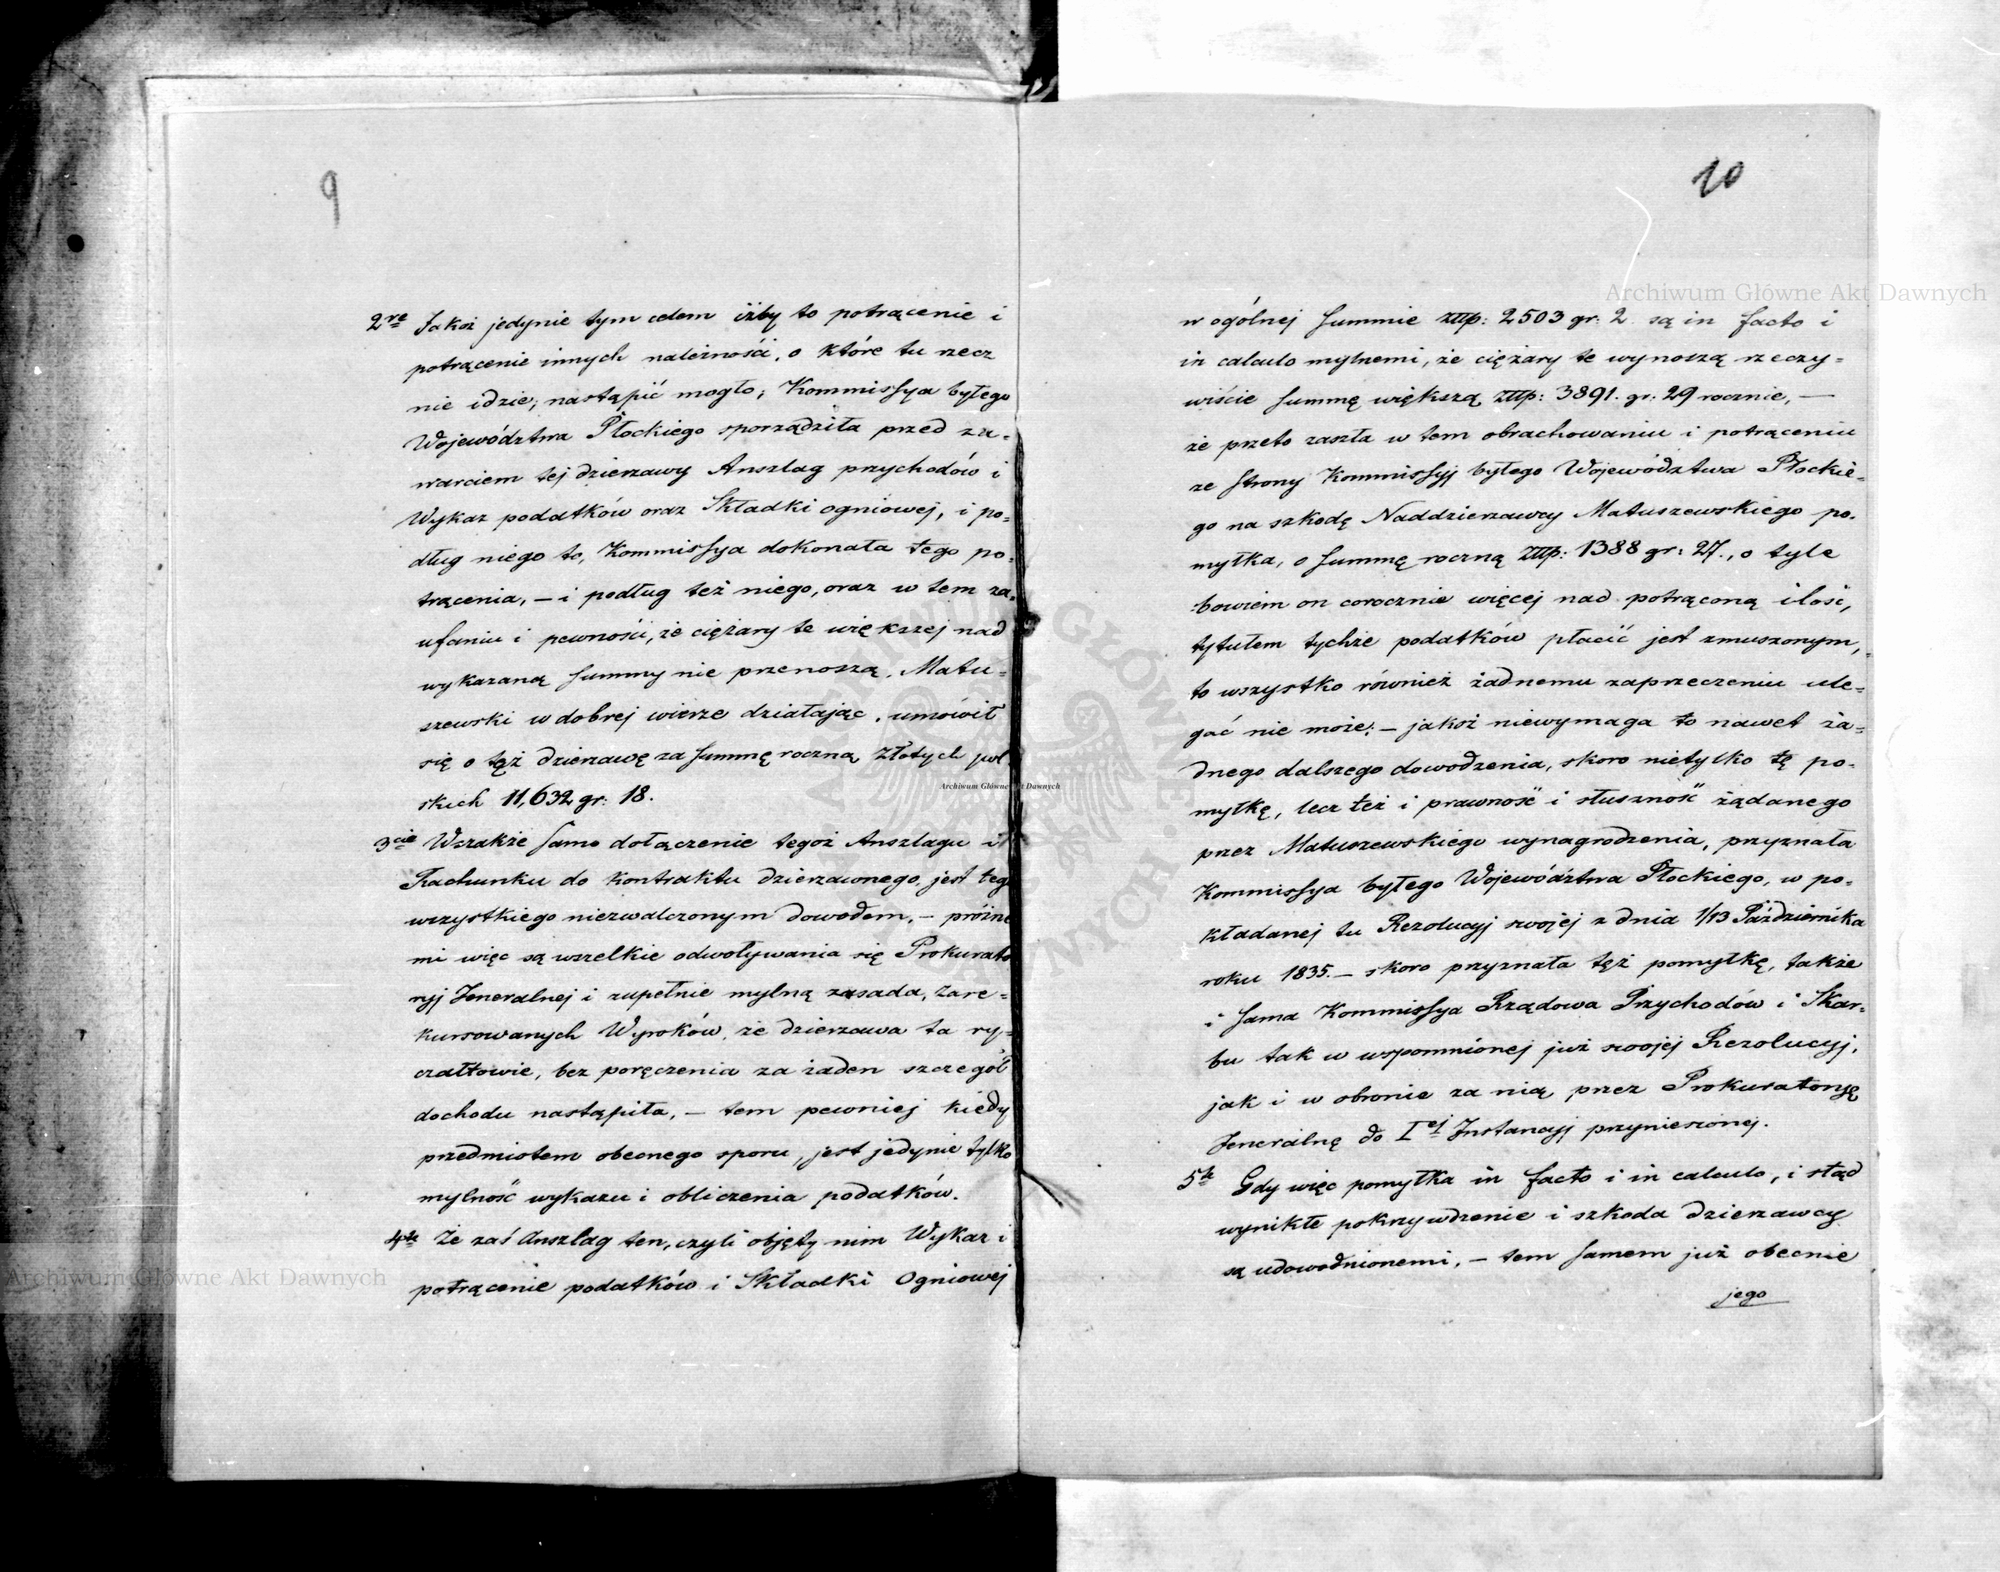 9
2re Jakoż jedynie tym celem iżby to potrącenie i
potrącenie innych należności, o które tu rzecz
nie idzie, nastąpić mogło; Kommissya byłego
Województwa Płockiego sporządziła przed za-
warciem tej dzierzawy Anszlag przychodów i
Wykaz podatków oraz Składki ogniowej, i po-
dług niego to, Kommissya dokonała tego po-
trącenia, – i podług też niego, oraz w tem za-
ufaniu i pewności, że ciężary te większej nad
wykazaną summy nie przenoszą, Matu-
szewski w dobrej wierze działając, umówił
się o tęż dzierzawę za summę roczną Złotych pol
skich 11,632 gr: 18.
3cie Wszakże samo dołączenie tegoż Anszlagu i
Rachunku do kontraktu dzierzawnego, jest tego
wszystkiego niezwalczonym dowodem, – próżne
mi więc są wszelkie odwoływania się Prokurato
ryj Jeneralnej i zupełnie mylną zasada, Zare-
kursowanych Wyroków, że dzierzawa ta ry-
czałtowie, bez poręczenia za żaden szczegół
dochodu nastąpiła, – tem pewniej kiedy
przedmiotem obecnego sporu, jest jedynie tylko
mylność wykazu i obliczenia podatków.
4te Że zaś Anszlag ten, czyli objęty nim Wykaz i
potrącenie podatków i Składki Ogniowej
10
w ogólnej summie złłp: 2503 gr: 2 są in facto i
in calculo mylnemi, że ciężary te wynoszą rzeczy-
wiście summę większą złłp: 3891. gr: 29 rocznie, –
że przeto zaszła w tem obrachowaniu i potrąceniu
ze strony Kommissyj byłego Województwa Płockie-
go na szkodę Naddzierzawcy Matuszewskiego po-
myłka, o summę roczną złłp: 1388 gr: 27., o tyle
bowiem on corocznie więcej nad potrąconą ilość,
tytułem tychże podatków płacić jest zmuszonym,
to wszystko również żadnemu zaprzeczeniu ule-
gać nie może; – jakoż niewymaga to nawet ża-
dnego dalszego dowodzenia, skoro nietylko tę po-
myłkę, lecz też i prawność i słuszność żądanego
przez Matuszewskiego wynagrodzenia, przyznała
Kommissya byłego Województwa Płockiego, w po-
kładanej tu Rezolucyj swojej z dnia 1/13 Października
roku 1835. – skoro przyznała też pomyłkę, także
i sama Kommissya Rządowa Przychodów i Skar-
bu tak w wspomnionej już swojej Rezolucyj,
jak i w obronie za nią przez Prokuratorję
Jeneralnę do Iej Instancyj przyniesionej.
5te Gdy więc pomyłka in facto i in calculo, i stąd
wynikłe pokrzywdzenie i szkoda dzierzawcy
są udowodnionemi, – tem samem już obecnie
jego
Archiwum Główne Akt Dawnych
Archiwum Główne Akt Dawnych
Archiwum Główne Akt Dawnych